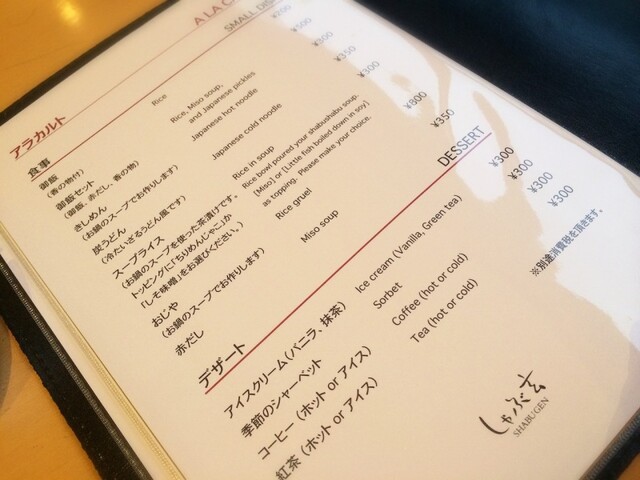 アラカルト
A LA C
食事
SMALL DISH
御飯
Rice
(香の物付)
御飯セット
Rice, Miso soup,
(御飯、赤だし、香の物)
and Japanese pickles
きしめん
Japanese hot noodle
(お鍋のスープでお作りします)
炭うどん
Japanese cold noodle
(冷たいざるうどん風です)
スープライス
Rice in soup
(お鍋のスープを使った茶漬けです。
Rice bowl poured your shabushabu soup.
トッピングに「ちりめんじゃこ」か
[Miso] or [Little fish boiled down in soy]
「しそ味噌」をお選びください。)
as topping. Please make your choice.
おじや
Rice gruel
(お鍋のスープでお作りします)
赤だし
Miso soup
¥500
¥350
¥300
¥800
¥350
デザート
DESSERT
アイスクリーム(バニラ、抹茶)
Ice cream (Vanilla, Green tea)
¥300
季節のシャーベット
Sorbet
¥300
コーヒー (ホット or アイス)
Coffee (hot or cold)
¥300
紅茶 (ホット or アイス)
Tea (hot or cold)
※別途消費税を頂きます。
しゃぶ玄
SHABUGEN